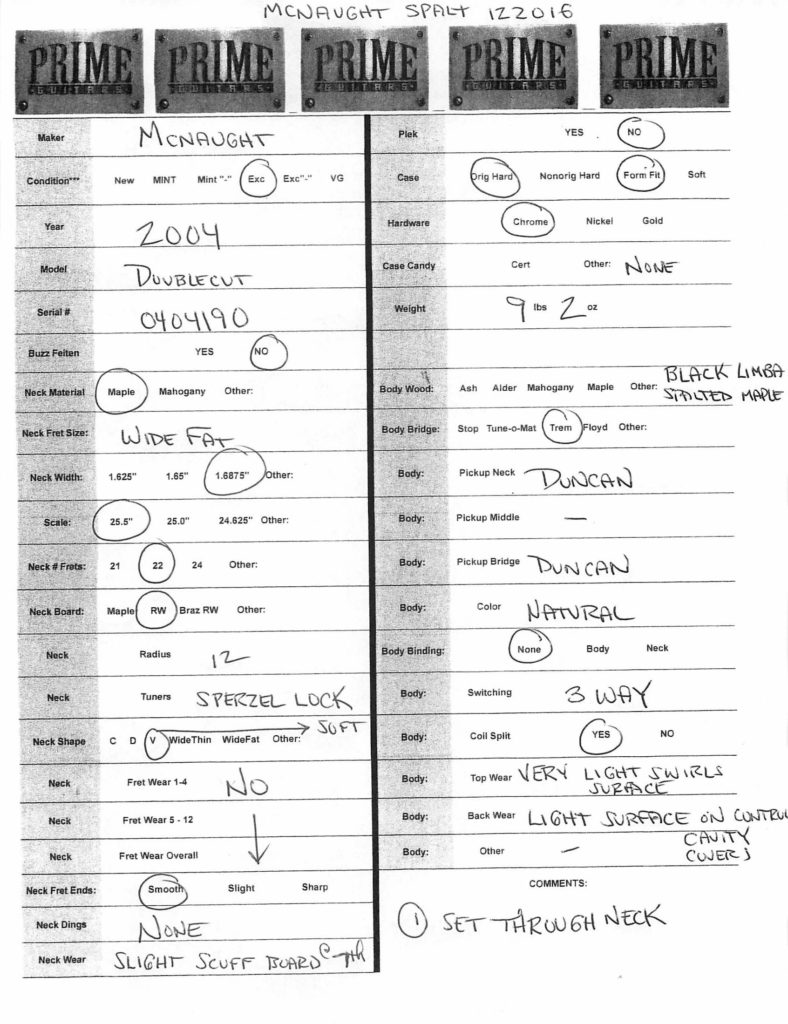 MCNAUGHT SPALT 122016
PRIME GUITARS PRIME GUITARS PRIME GUITARS PRIME GUITARS PRIME GUITARS
Maker MCNAUGHT
Condition*** New MINT Mint "-" Exc Exc"-" VG
Year 2004
Model DOUBLECUT
Serial # 0404190
Buzz Feiten YES NO
Neck Material Maple Mahogany Other:
Neck Fret Size: WIDE FAT
Neck Width: 1.625" 1.65" 1.6875" Other:
Scale: 25.5" 25.0" 24.625" Other:
Neck # Frets: 21 22 24 Other:
Neck Board: Maple RW Braz RW Other:
Neck Radius 12
Neck Tuners SPERZEL LOCK
Neck Shape C D V WideThin WideFat Other: SOFT
Neck Fret Wear 1-4 NO
Neck Fret Wear 5 - 12
Neck Fret Wear Overall
Neck Fret Ends: Smooth Slight Sharp
Neck Dings NONE
Neck Wear SLIGHT SCUFF BOARD @ 7th
Plek YES NO
Case Orig Hard Nonorig Hard Form Fit Soft
Hardware Chrome Nickel Gold
Case Candy Cert Other: NONE
Weight 9 lbs 2 oz
Body Wood: Ash Alder Mahogany Maple Other: BLACK LIMBA
SPALTED MAPLE
Body Bridge: Stop Tune-o-Mat Trem Floyd Other:
Body: Pickup Neck DUNCAN
Body: Pickup Middle —
Body: Pickup Bridge DUNCAN
Body: Color NATURAL
Body Binding: None Body Neck
Body: Switching 3 WAY
Body: Coil Split YES NO
Body: Top Wear VERY LIGHT SWIRLS
SURFACE
Body: Back Wear LIGHT SURFACE ON CONTROL
CAVITY
COVERS
Body: Other —
COMMENTS:
1 SET THROUGH NECK